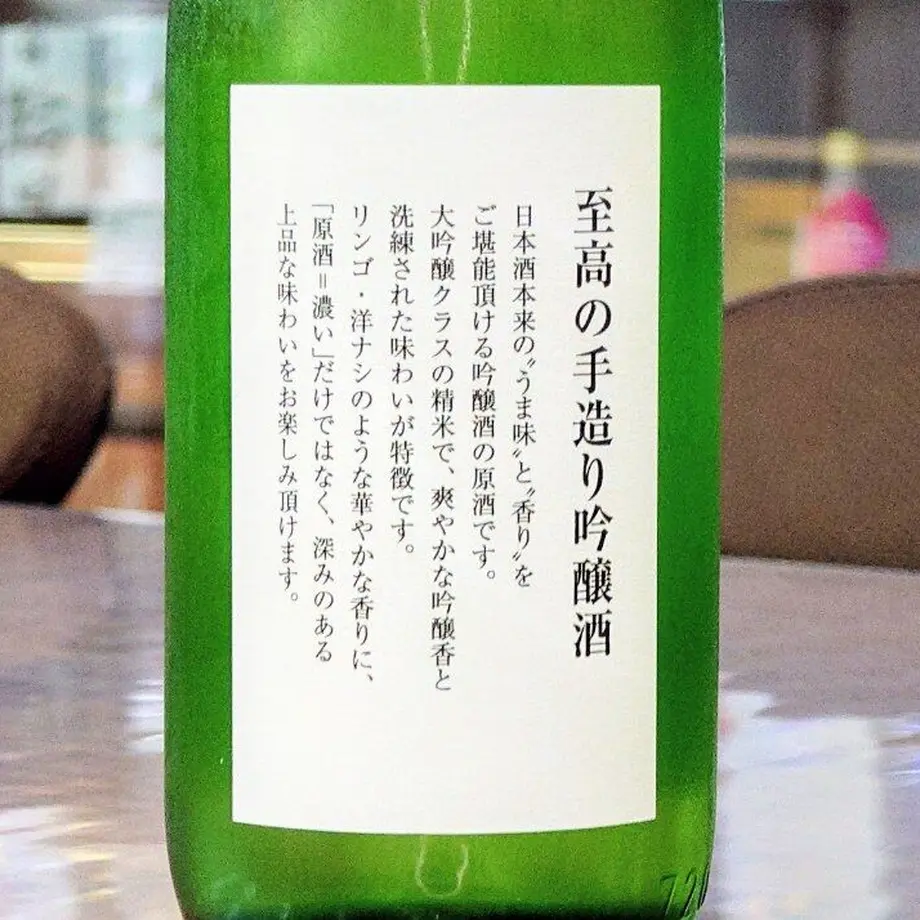 至高の手造り吟醸酒
日本酒本来の〝うま味〟と〝香り〟を
ご堪能頂ける吟醸酒の原酒です。
大吟醸クラスの精米で、爽やかな吟醸香と
洗練された味わいが特徴です。
リンゴ・洋ナシのような華やかな香りに、
「原酒=濃い」だけではなく、深みのある
上品な味わいをお楽しみ頂けます。